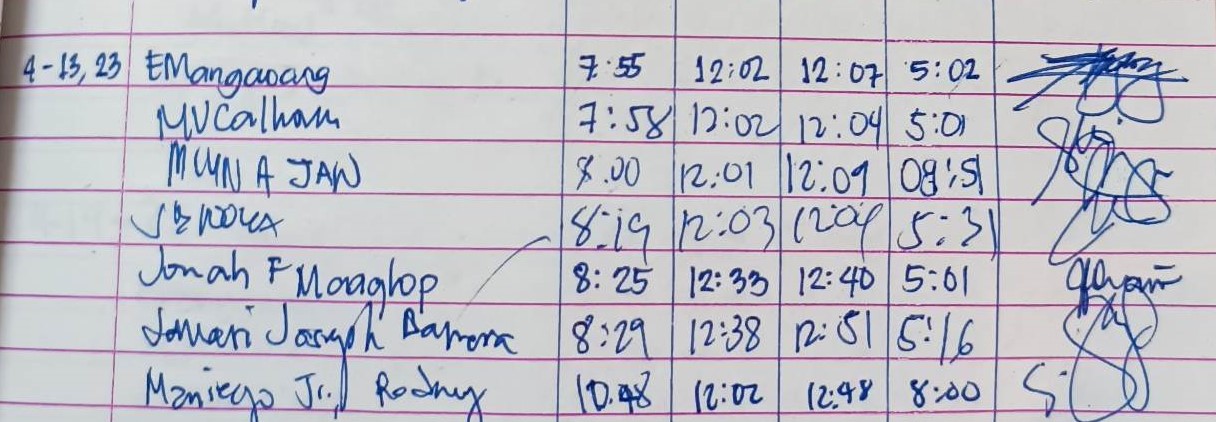 4-13, 23 EMangaoang 7:55 12:02 12:07 5:02
MVCalham 7:58 12:02 12:04 5:01
8:00 12:01 12:09
8:19 12:03 12:09 5:31
Jonah F Maaglop 8:25 12:33 12:40 5:01
Joseph 8:29 12:38 12:51 5:16
Maniego Jr., Rodney 10:48 12:02 12:48 8:00